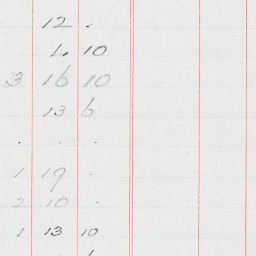 12 .
4 10
3 16 10
13 6
. . .
1 19 .
2 10 .
1 13 10